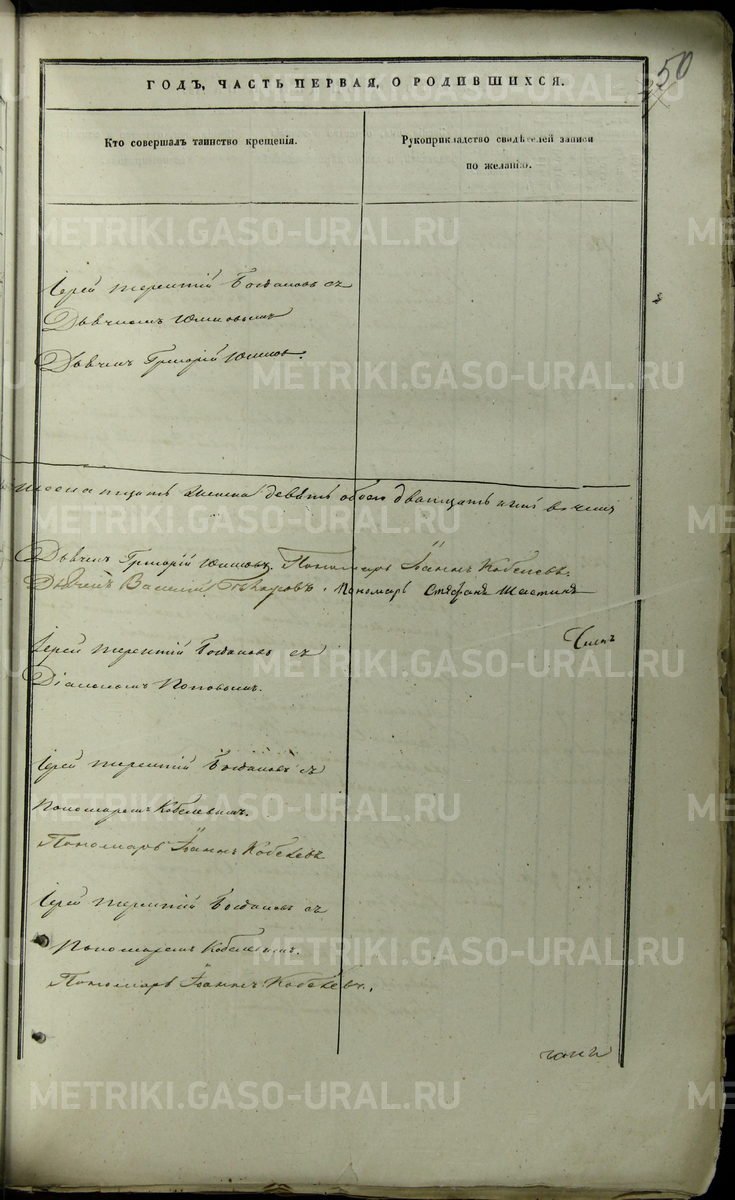 50
ГОДЪ, ЧАСТЬ ПЕРВАЯ, О РОДИВШИХСЯ.
Кто совершалъ таинство крещенія.
Рукоприкладство свидѣтелей записи
по желанію.
METRIKI.GASO-URAL.RU
Іерей Терентій Богдановъ съ
Дьячкомъ
Дьячекъ Григорій
девять обоего двадцать
Дьячекъ Григорій Пономарь Іоаннъ Кобелевъ.
Дьячекъ Василій Пономарь Стефанъ Шастинъ
Іерей Терентій Богдановъ съ
Діакономъ Поповымъ.
Іерей Терентій Богдановъ съ
Пономаремъ Кобелевымъ.
Пономарь Іоаннъ Кобелевъ
Іерей Терентій Богдановъ съ
Пономаремъ Кобелевымъ.
Пономарь Іоаннъ Кобелевъ.